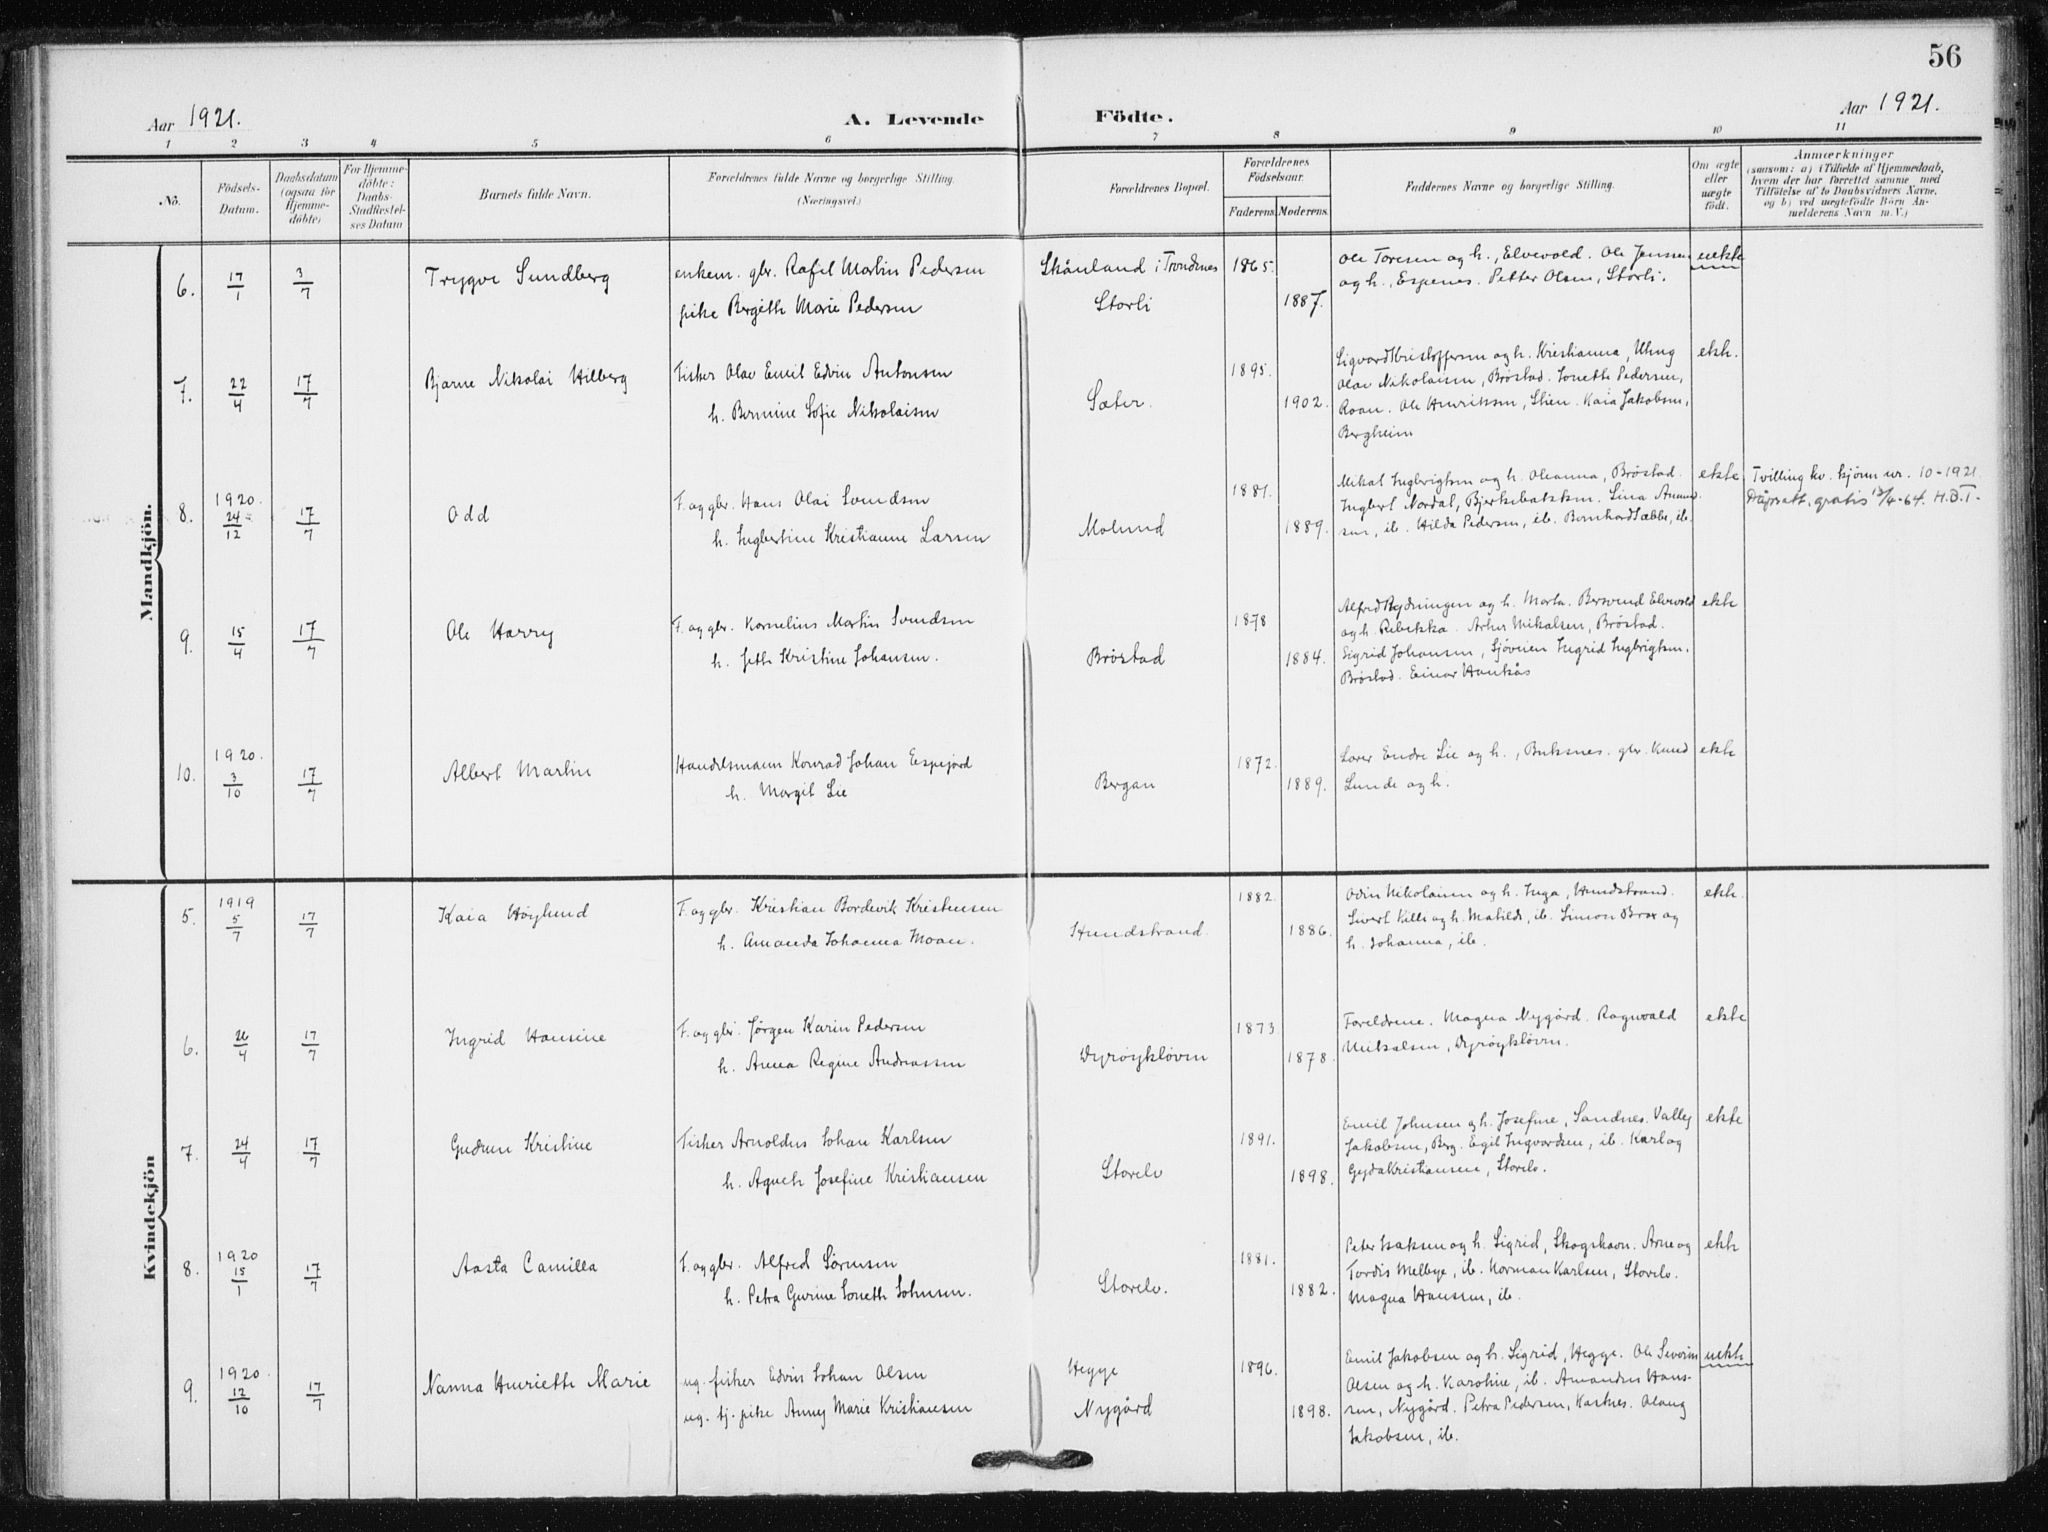 56
Aar 1921.
A. Levende Födte.
Aar 1921.
1 2 3 4 5 6 7 8 9 10 11
No.
Födsels-Datum.
Daabsdatum (ogsaa för Hjemmedöbte)
For Hjemmedöbte: Daabs-Stadfæstelses Datum
Barnets fulde Navn.
Forældrenes fulde Navne og borgerlige Stilling. (Næringsvei.)
Forældrenes Bopæl.
Forældrenes Födselsaar.
Faderens. Moderens.
Faddernes Navne og borgerlige Stilling.
Om ægte eller uægte födt.
Anmærkninger
(saasom: a) i Tilfælde af Hjemmedaab, hvem der har forrettet samme med Tilföielse af to Daabsvidners Navne, og b) ved uægtefödte Börn Anmelderens Navn m. V.)
Mandkjön.
6. 17/1 3/7 Trygve Sundberg
enkem. gbr. Rafil Martin Pedersen
pike Bergith Marie Pedersen
Skånland i Trondenes
Storli
1865.
1887.
Ole Toresen og h., Elvevold. Ole Jensen
og h., Espenes. Petter Olsen, Storli.
uekte
7. 22/4 17/7 Bjarne Nikolai Hilberg
Fisker Olav Emil Edvin Antonsen
h. Bernine Sofie Nikolaisen
Sæter.
1895.
1902.
Sigvard Kristoffersen og h. Kristianna,
Olav Nikolaisen, Bröstad. Joneth Pedersen,
Roan. Ole Henriksen, Kaia Jakobsen,
Bergheim
ekk.
8. 1920. 24/12 17/7 Odd
F. og gbr. Hans Olai Svendsen
h. Ingbertine Kristianne Larsen
Molund
1881.
1889.
Mikal Ingbrigtsen og h. Oleanna, Bröstad.
Ingbert Nordal, Bjerkebakken. Lina Annes
sen, ib. Hilda Pedersen, ib. Bernhard Sæbbe, ib.
ekte
Tvilling kv. kjönn nr. 10-1921
Dåpsatt. gratis 13/4-64. H.B.T.
9. 15/4 17/7 Ole Harry
F. og gbr. Kornelius Martin Svendsen
h. Jeth Kristine Johansen.
Bröstad
1878
1884.
Alfred Rydningen og h. Marta. Bersvend Elvevold
og h. Rebekka. Artur Mikalsen, Bröstad.
Sigrid Johansen, Sjöveien Ingrid Ingbrigtsen.
Bröstad. Einar Haukås
ekte
10. 1920. 3/10 17/7 Albert Martin
Handelsmann Konrad Johan Espejord
h. Margit Lie
Bergan
1872.
1889.
Lærer Endre Lie og h., Buksnes. gbr. Knud
Lunde og h.
ekte
Kvindekjön
5. 1919 5/7 17/7 Kaia Höglund
F. og gbr. Kristian Bordevik Kristensen
h. Amanda Johanna Moan.
Hundstrand.
1882.
1886.
Odin Nikolaisen og h. Inga, Hundstrand.
Sivert Kille og h. Matilde, ib. Simon Brox og
h. Johanna, ib.
ekte.
6. 26/4 17/7 Ingrid Hansine
F. og gbr. Jörgen Karin Pedersen
h. Anna Regine Andreassen
Dyröykloven
1873
1878.
Foreldrene. Magna Nygård. Ragnvald
Mikalsen, Dyröykloven.
ekte
7. 24/4 17/7 Gudrun Kristine
Fisker Arnoldus Johan Karlsen
h. Agneth Josefine Kristiansen
Storelv
1891.
1898.
Emil Johnsen og h. Josefine, Sandnes. Valley
Jakobsen, Berg. Egil Ingvardsen, ib. Karl og
Gyda Kristiansen, Storelv.
ekte
8. 1920 15/1 17/7 Aasta Camilla
F. og gbr. Alfred Sörensen
h. Petra Gurine Joneth Johnsen.
Storelv.
1881.
1882.
Peter Isaksen og h. Sigrid, Skogshavn. Arne og
Tordis Melbye, ib. Norman Karlsen, Storelv.
Magna Hansen, ib.
ekte
9. 1920. 12/10 17/7 Nanna Henriette Marie
ug. fisker Edvin Johan Olsen
ug. tj. pike Anny Marie Kristiansen
Hegge
Nygård
1896.
1898.
Emil Jakobsen og h. Sigrid, Hegge. Ole Severin
Olsen og h. Karoline, ib. Amandus Han-
sen, Nygård. Petra Pedersen, Kastnes. Olaug
Jakobsen, ib.
uekte